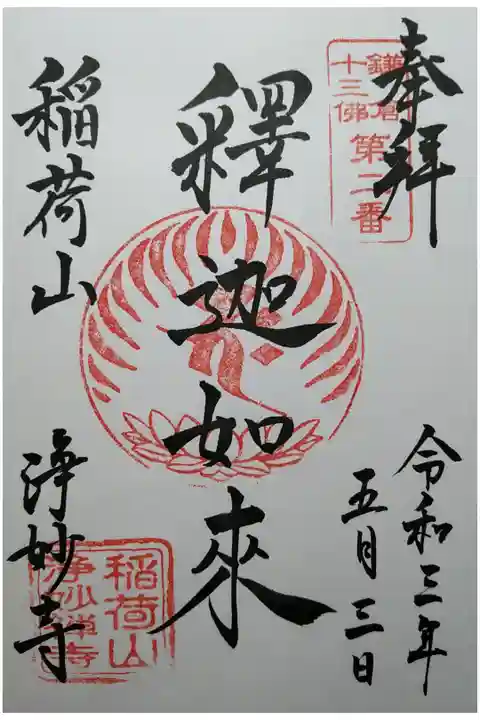 奉拜
鎌倉
十三佛
第二番
釋迦如來
令和三年
五月三日
稲荷山
浄妙寺
稲荷山
浄妙禅寺